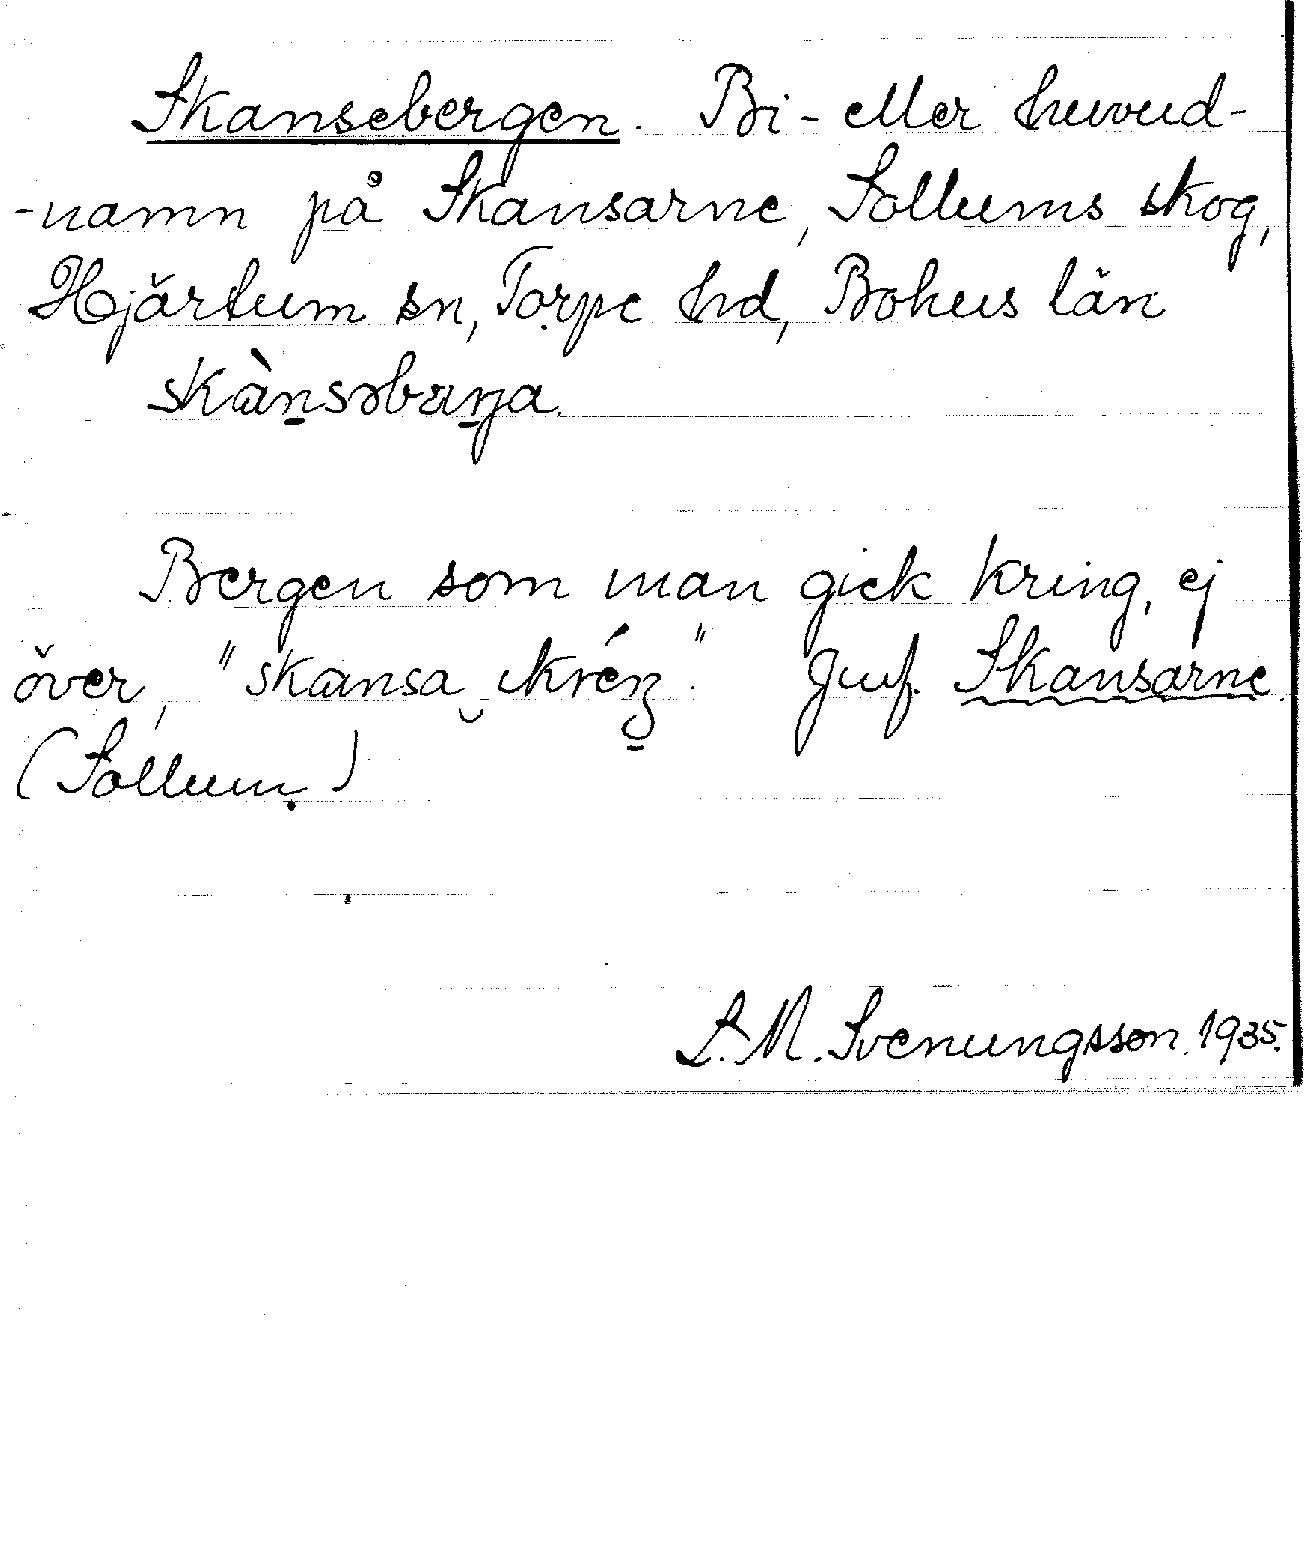 Skansebergen. Bi- eller huvud-
-namn på Skansarne, Sollums skog,
Hjärtum sn, Torpe hd, Bohus län
skànsəbæŋa.
Bergen som man gick kring, ej
över, "skansa ikréŋ." Jmf. Skansarne
(Sollum)
S. M. Svenungsson. 1935.